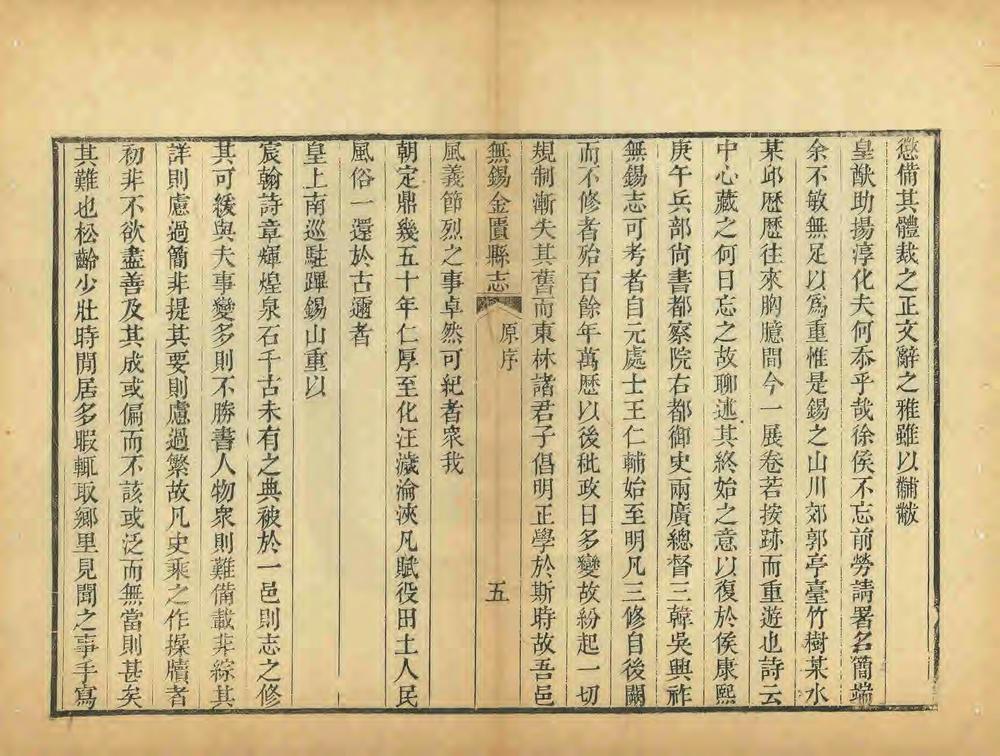 懲備其體裁之正文辭之雅雖以黼黻
皇猷助揚淳化夫何忝乎哉徐侯不忘前勞請署名簡端
余不敏無足以爲重惟是錫之山川郊郭亭臺竹樹某水
某邱歷歷往來胸臆間今一展卷若按跡而重遊也詩云
中心藏之何日忘之故聊述其終始之意以復於侯康熙
庚午兵部尙書都察院右都御史兩廣總督三韓吳興祚
無錫志可考者自元處士王仁輔始至明凡三修自後闕
而不修者殆百餘年萬歷以後秕政日多變故紛起一切
規制漸失其舊而東林諸君子倡明正學於斯時故吾邑
無錫金匱縣志
原序
五
風義節烈之事卓然可紀者衆我
朝定鼎幾五十年仁厚至化汪濊淪浹凡賦役田土人民
風俗一還於古邇者
皇上南巡駐蹕錫山重以
宸翰詩章輝煌泉石千古未有之典被於一邑則志之修
其可緩與夫事變多則不勝書人物衆則難備載非綜其
詳則慮過簡非提其要則慮過繁故凡史乘之作操牘者
初非不欲盡善及其成或偏而不該或泛而無當則甚矣
其難也松齡少壯時閒居多暇輒取鄉里見聞之事手寫